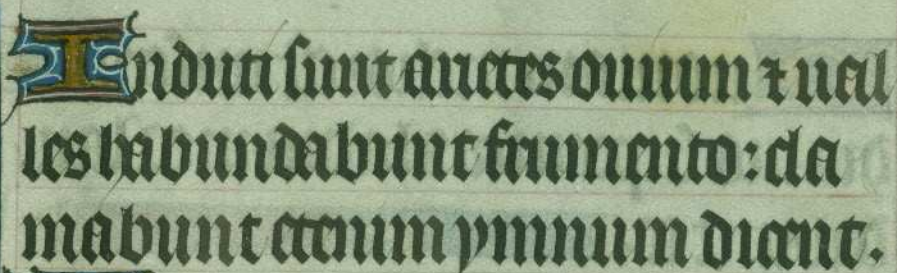 Induti sunt arietes ouium ⁊ ual
les habundabunt frumento: cla
mabunt etenim ymnum dicent.